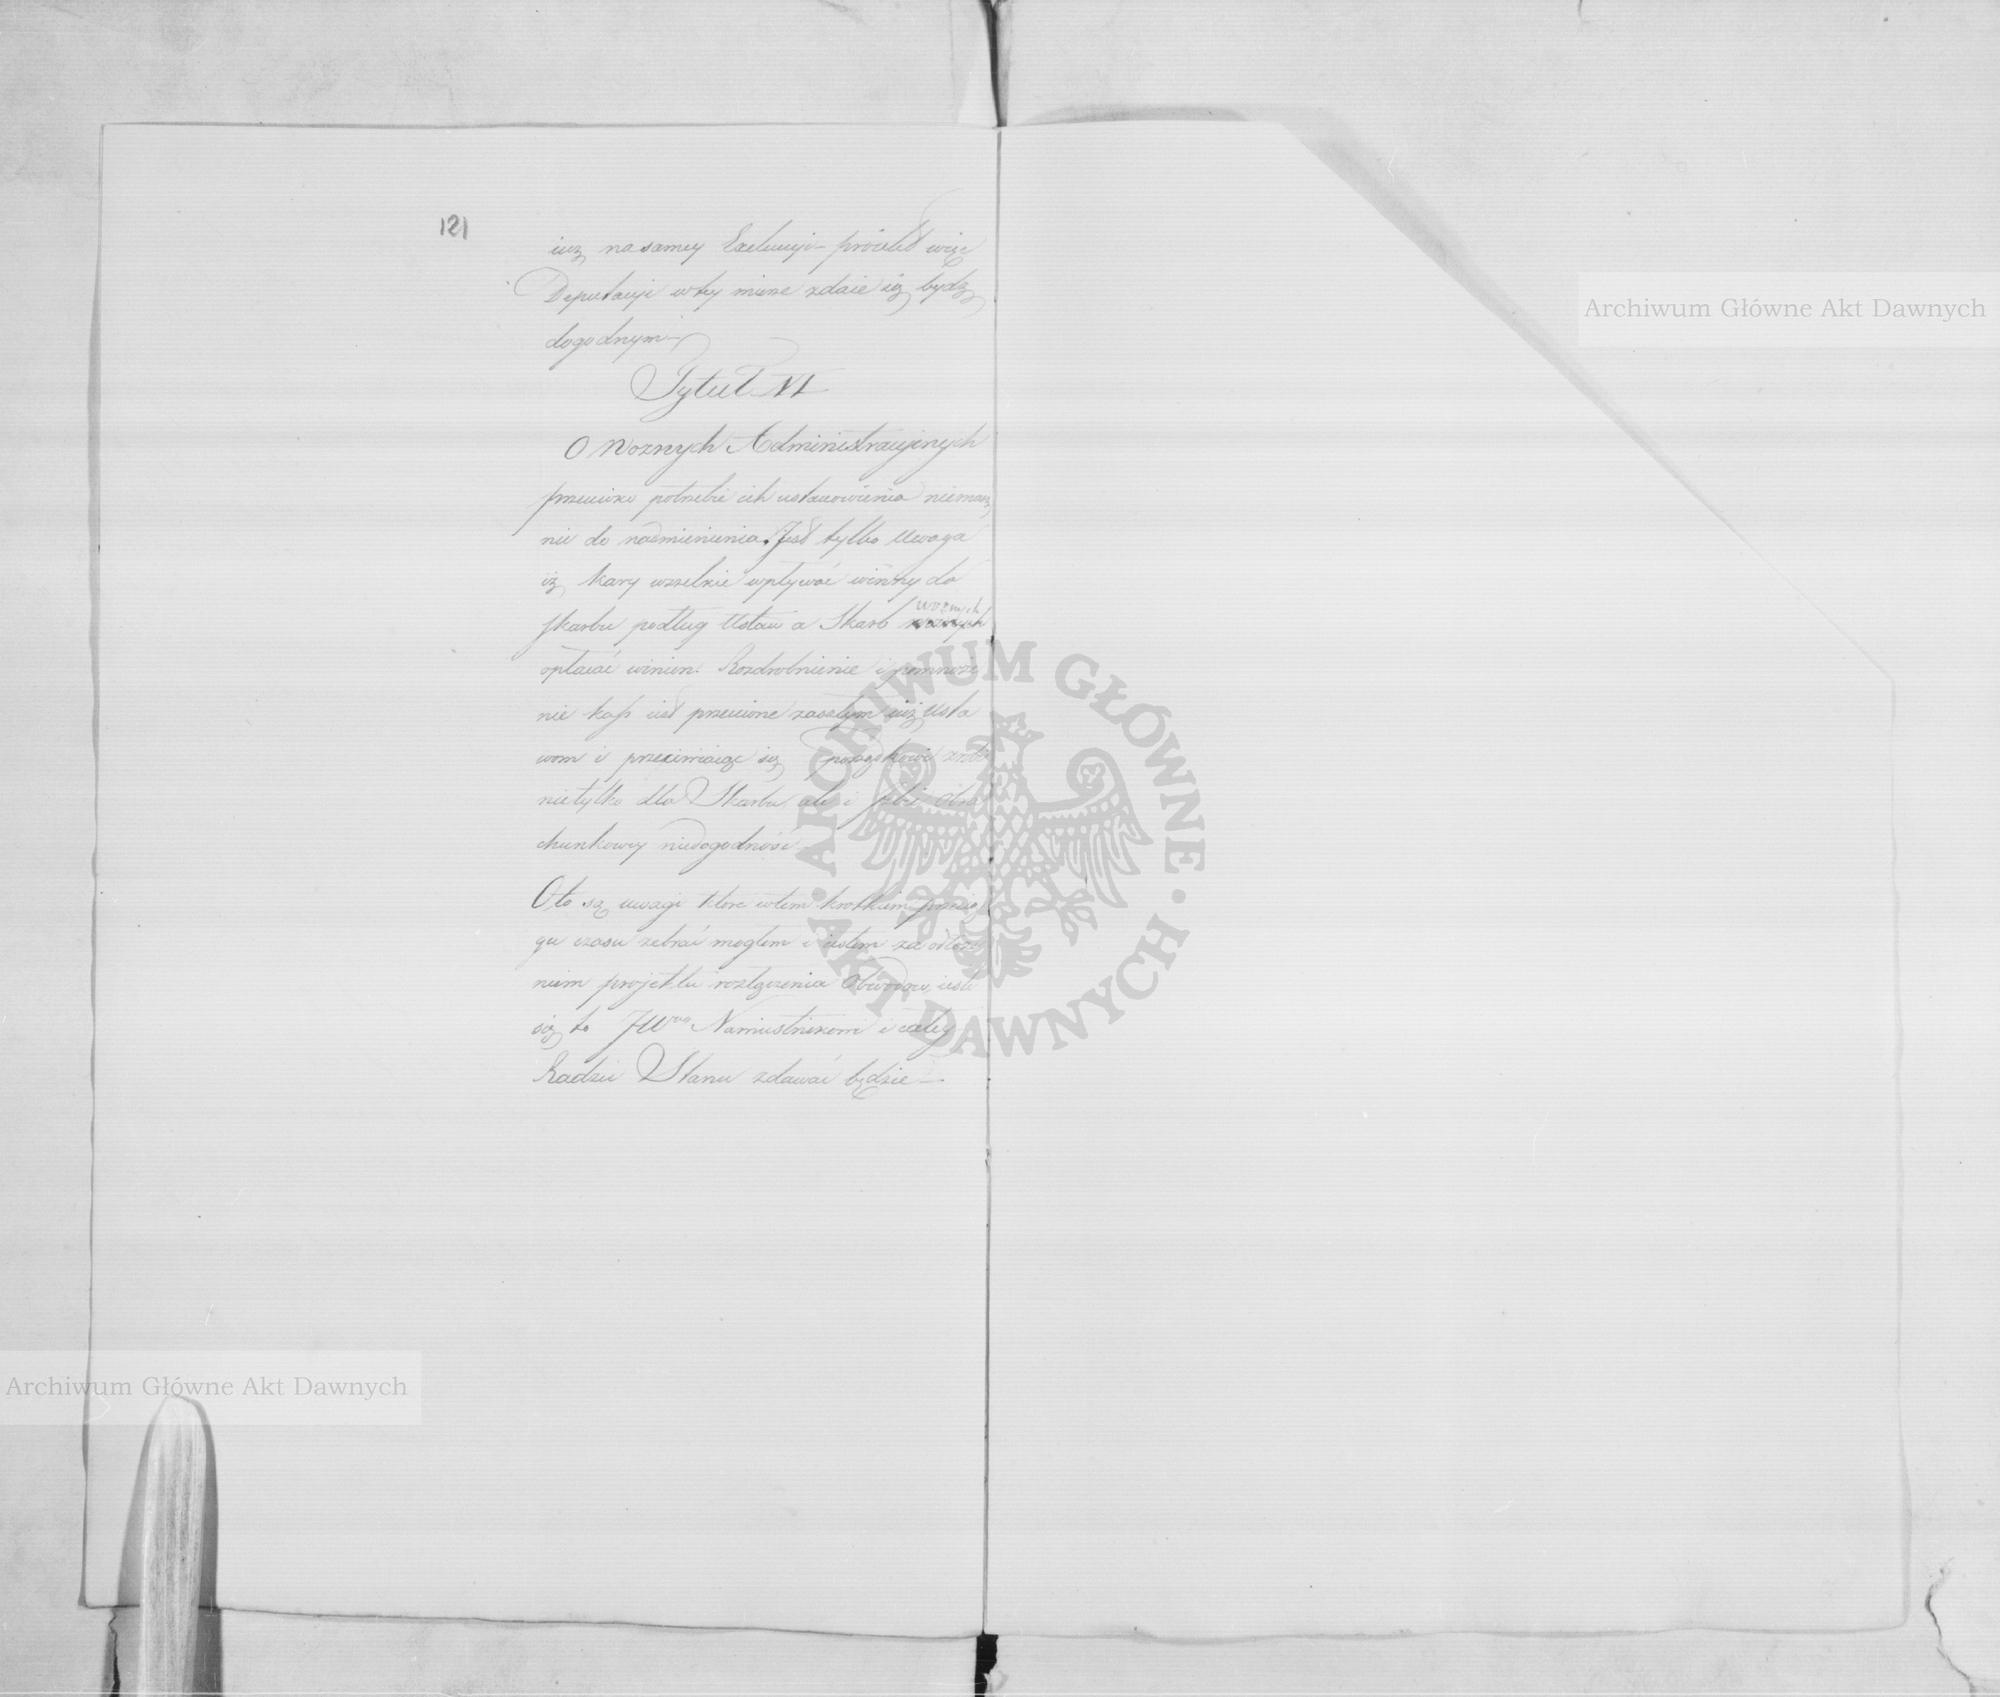 121
iuż na samey Exekucyi – projekt więc
Deputacyi w tey mierze zdaie się bydź
dogodnym –
Tytuł VI
O Woznych Administracyinych
przeciwko potrzebie ich ustanowienia niemasz
nic do nadmienienia. Jest tylko uwaga
iż kary wszelkie wpływać winny do
skarbu podług Ustaw a Skarb woznych
opłacać winien. Rozdrobnienie i pomnoże
nie kass iest przeciwne zaszłym iuż Usta
wom i przeciwiaiąc się porządkowi zrobi
nietylko dla Skarbu ale i Izbie Obra
chunkowey niedogodność –
Oto są uwagi ktore w tem krotkiem przecią
gu czasu zebrać mogłem i iestem za odłoże
niem projektu rozłączenia Obwodow, ieśli
się to JWmu Namiestnikowi i całey
Radzie Stanu zdawać będzie –
Archiwum Główne Akt Dawnych
Archiwum Główne Akt Dawnych
ARCHIWUM GŁÓWNE AKT DAWNYCH